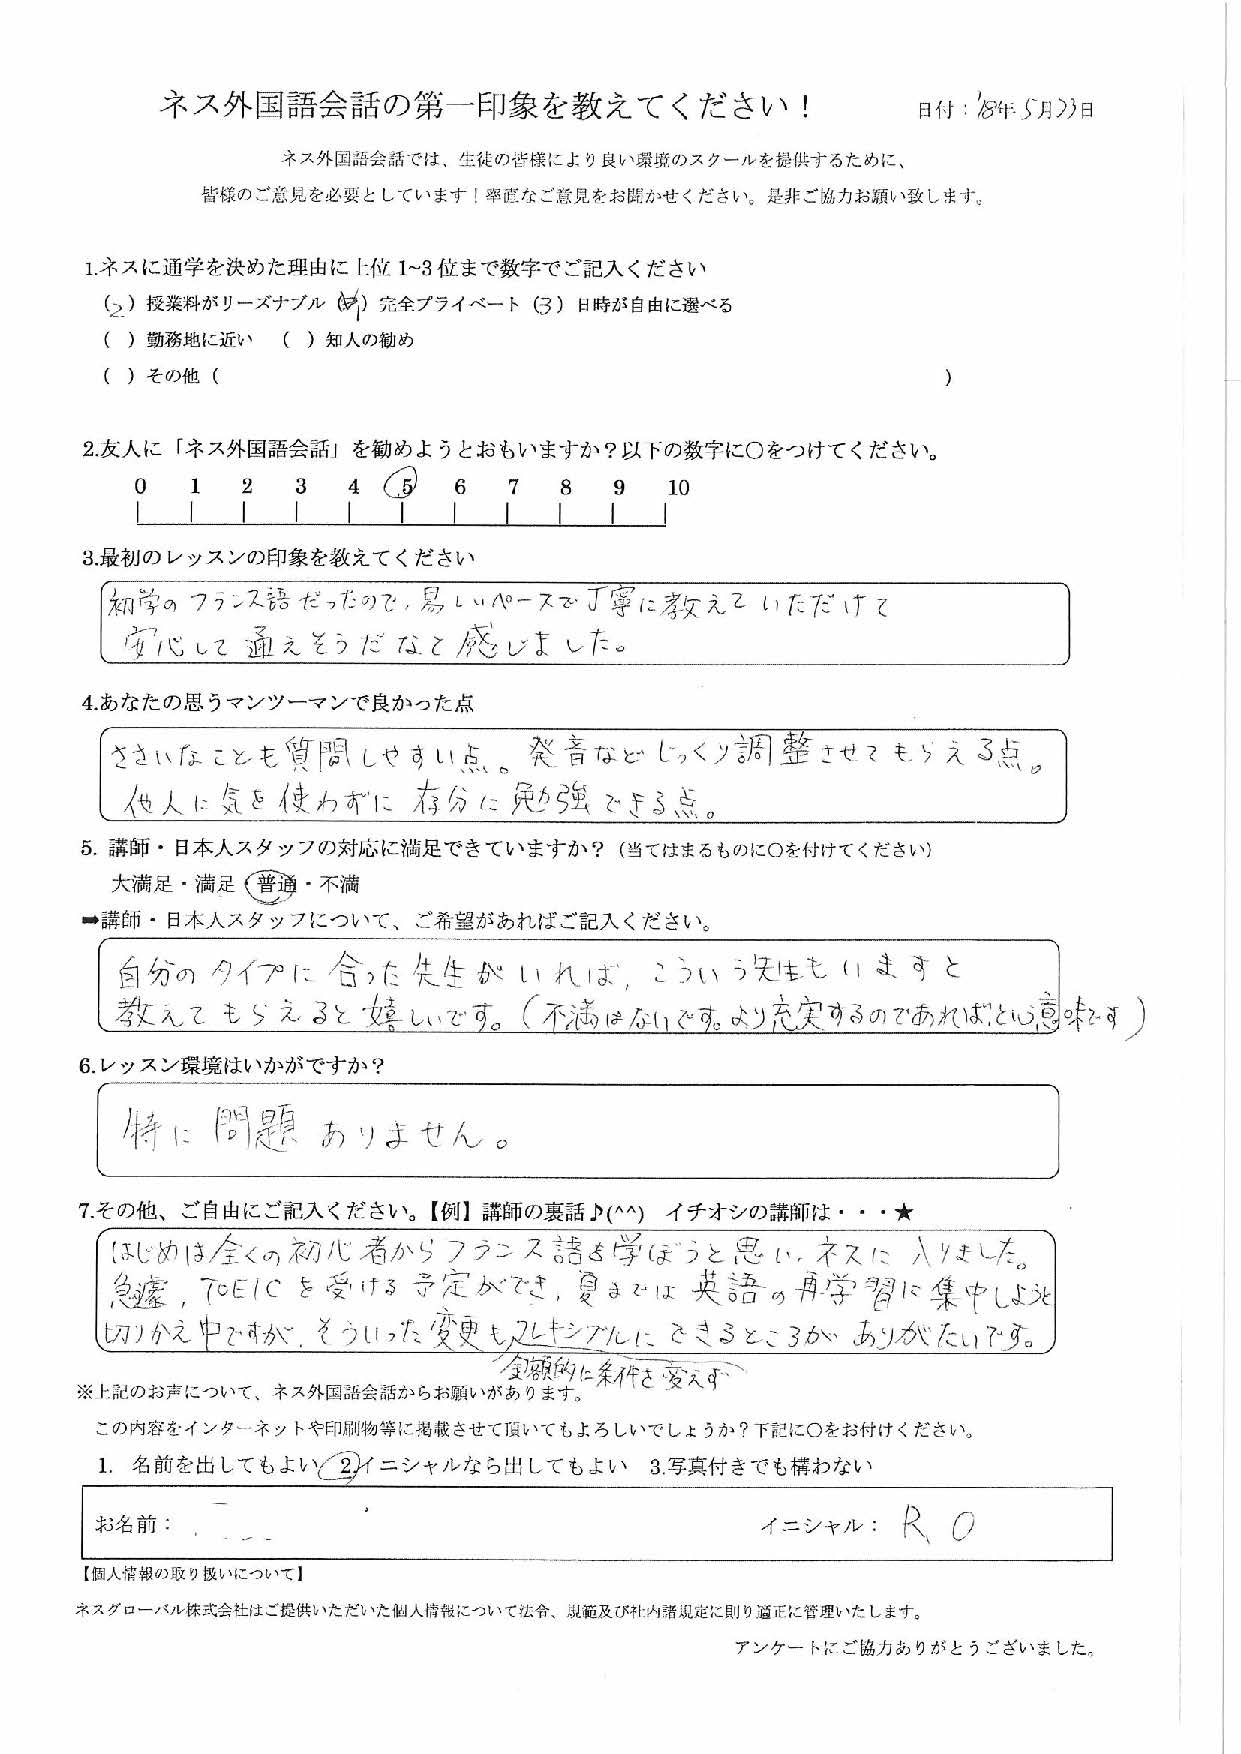 ネス外国語会話の第一印象を教えてください！ 日付：'18年5月23日
ネス外国語会話では、生徒の皆様により良い環境のスクールを提供するために、
皆様のご意見を必要としています！率直なご意見をお聞かせください。是非ご協力お願い致します。
1.ネスに通学を決めた理由に上位 1~3 位まで数字でご記入ください
（2）授業料がリーズナブル（1）完全プライベート（3）日時が自由に選べる
（ ）勤務地に近い （ ）知人の勧め
（ ）その他（ ）
2.友人に「ネス外国語会話」を勧めようとおもいますか？以下の数字に〇をつけてください。
0 1 2 3 4 5 6 7 8 9 10
3.最初のレッスンの印象を教えてください
初学のフランス語だったので、易しいペースで丁寧に教えていただけて
安心して通えそうだなと感じました。
4.あなたの思うマンツーマンで良かった点
ささいなことも質問しやすい点。発音などじっくり調整させてもらえる点。
他人に気を使わずに存分に勉強できる点。
5. 講師・日本人スタッフの対応に満足できていますか？（当てはまるものに〇を付けてください）
大満足・満足・普通・不満
➡講師・日本人スタッフについて、ご希望があればご記入ください。
自分のタイプに合った先生がいれば、こういう先生もいますと
教えてもらえると嬉しいです。（不満はないです。より充実するのであれば、という意味です）
6.レッスン環境はいかがですか？
特に問題ありません。
7.その他、ご自由にご記入ください。【例】講師の裏話♪(^^) イチオシの講師は・・・★
はじめは全くの初心者からフランス語を学ぼうと思い、ネスに入りました。
急遽、TOEICを受ける予定ができ、夏までは英語の再学習に集中しようと
切りかえ中ですが、そういった変更もフレキシブルにできるところがありがたいです。
金額的に条件を変えず
※上記のお声について、ネス外国語会話からお願いがあります。
この内容をインターネットや印刷物等に掲載させて頂いてもよろしいでしょうか？下記に〇をお付けください。
1. 名前を出してもよい 2.イニシャルなら出してもよい 3.写真付きでも構わない
お名前： イニシャル： R、O
【個人情報の取り扱いについて】
ネスグローバル株式会社はご提供いただいた個人情報について法令、規範及び社内諸規定に則り適正に管理いたします。
アンケートにご協力ありがとうございました。